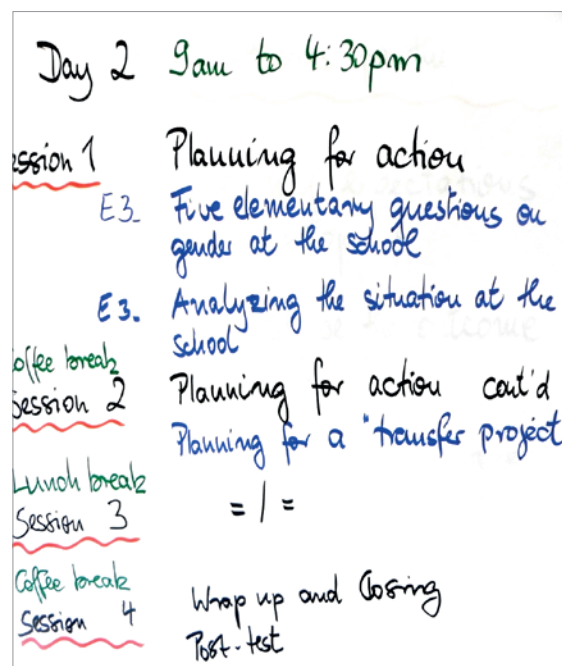 Day 2 9am to 4:30pm
ession 1 Planning for action
E3. Five elementary questions on
gender at the school
E3. Analyzing the situation at the
school
offee break
Session 2 Planning for action cont'd
Planning for a "transfer project
Lunch break
Session 3 = / =
Coffee break
Session 4 Wrap up and Closing
Post-test